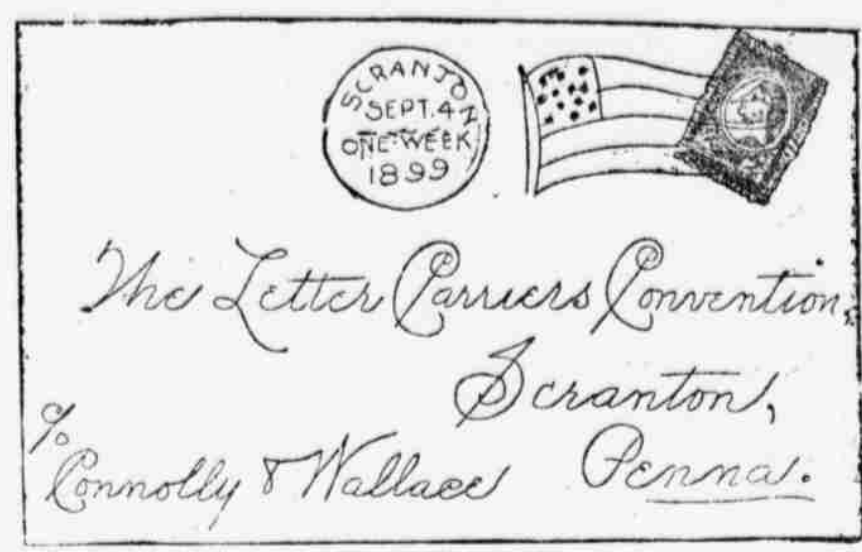 SCRANTON
SEPT. 4
ONE WEEK
1899
The Letter Carriers Convention,
Scranton,
℅
Connolly & Wallace Penna.